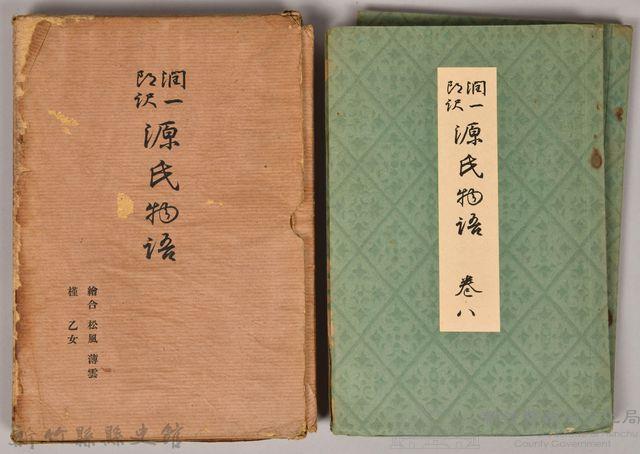 潤一
郎訳
源氏物語
繪合 松風 薄雲
槿 乙女
潤一
郎訳
源氏物語
卷八
新竹縣縣史館
County Government